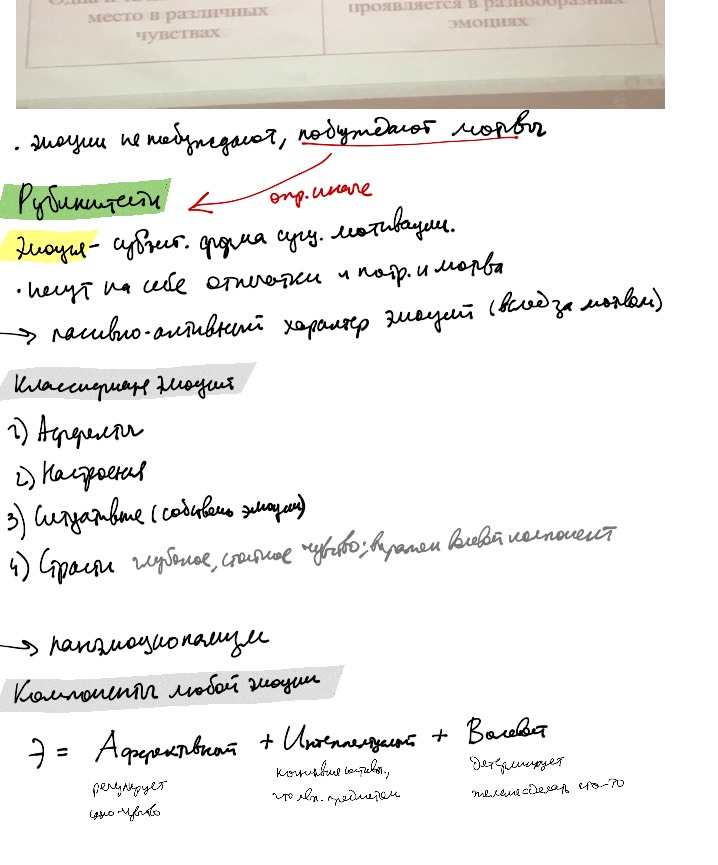 место в различных
чувствах
проявляется в разнообразных
эмоциях
· эмоции не побуждают, побуждают мотивы
Рубинштейн
опр. иначе
Эмоция - субъект. форма сущ. мотивации.
· несут на себе отпечатки и потр. и мотива
→ пасивно-активный характер эмоций (вслед за мотивом)
Классификация эмоций
1) Аффекты
2) Настроения
3) Ситуативные (собственно эмоции)
4) Страсти глубокое, стойкое чувство; выражен волевой компонент
→ панэмоционализм
Компоненты любой эмоции
Э = Аффективный + Интеллектуальный + Волевой
регулирует
само чувство
что явл. предметом
детерминирует
желание сделать что-то